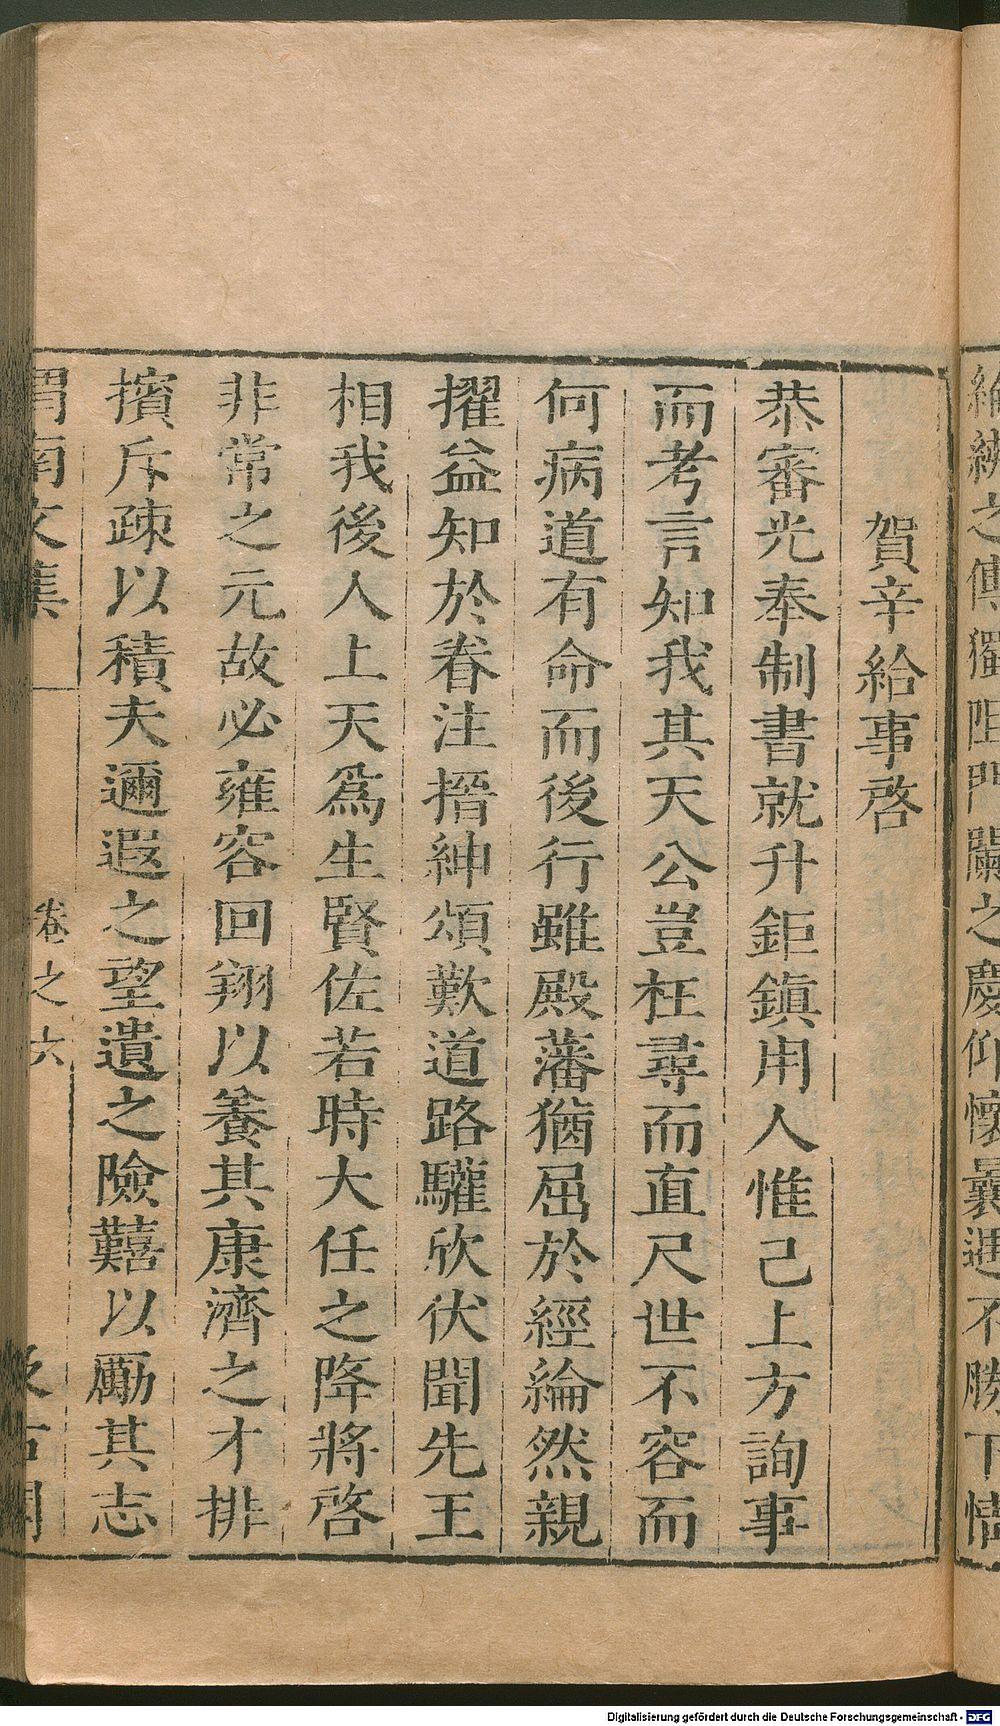 絶
之傳獨阻門闌之慶仰懷曩遇不勝下情
賀辛給事啓
恭審光奉制書就升鉅鎮用人惟己上方詢事
而考言知我其天公豈枉尋而直尺世不容而
何病道有命而後行雖殿藩猶屈於經綸然親
擢益知於眷注搢紳頌歎道路驩欣伏聞先王
相我後人上天爲生賢佐若時大任之降將啓
非常之元故必雍容回翔以養其康濟之才排
擯斥疎以積夫邇遐之望遺之險囏以勵其志
渭南文集 卷之六 汲古閣
Digitalisierung gefördert durch die Deutsche Forschungsgemeinschaft - DFG